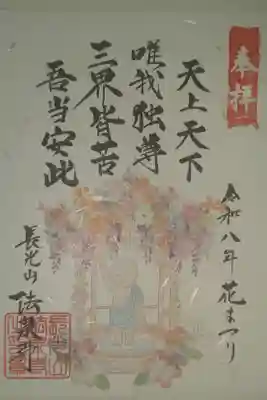 奉拝
天上天下
唯我独尊
三界皆苦
吾当安此
令和八年 花まつり
長光山 法泉寺